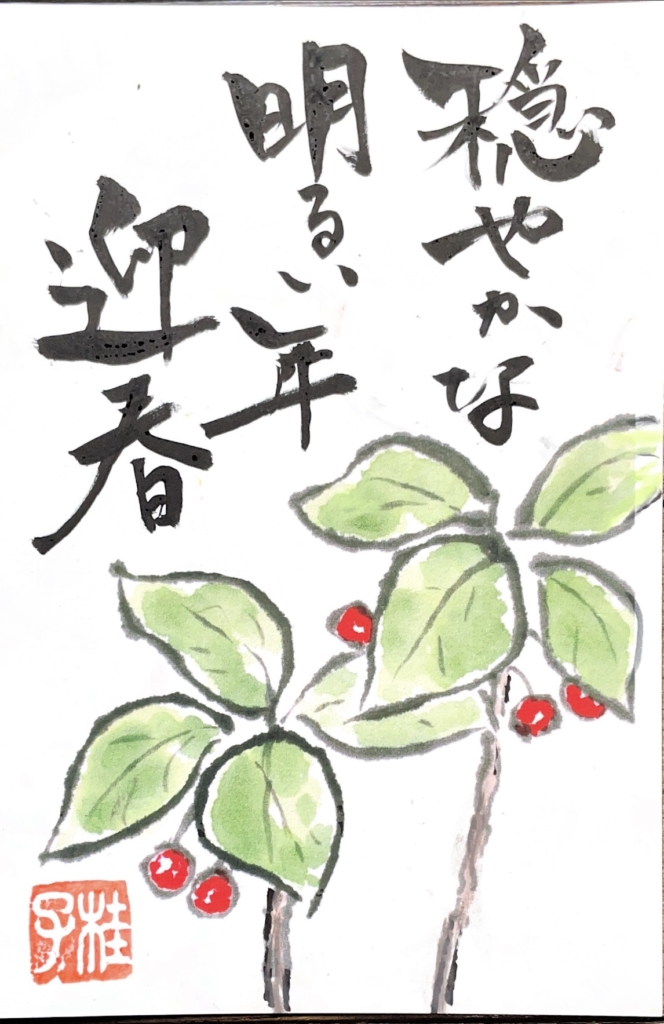 穏やかな
明るい年
迎春
桂子